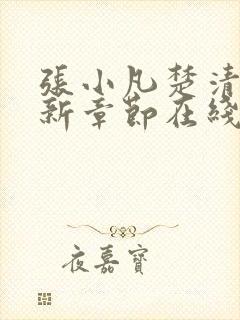 張小凡楚清
新章節在綫
夜嘉寶